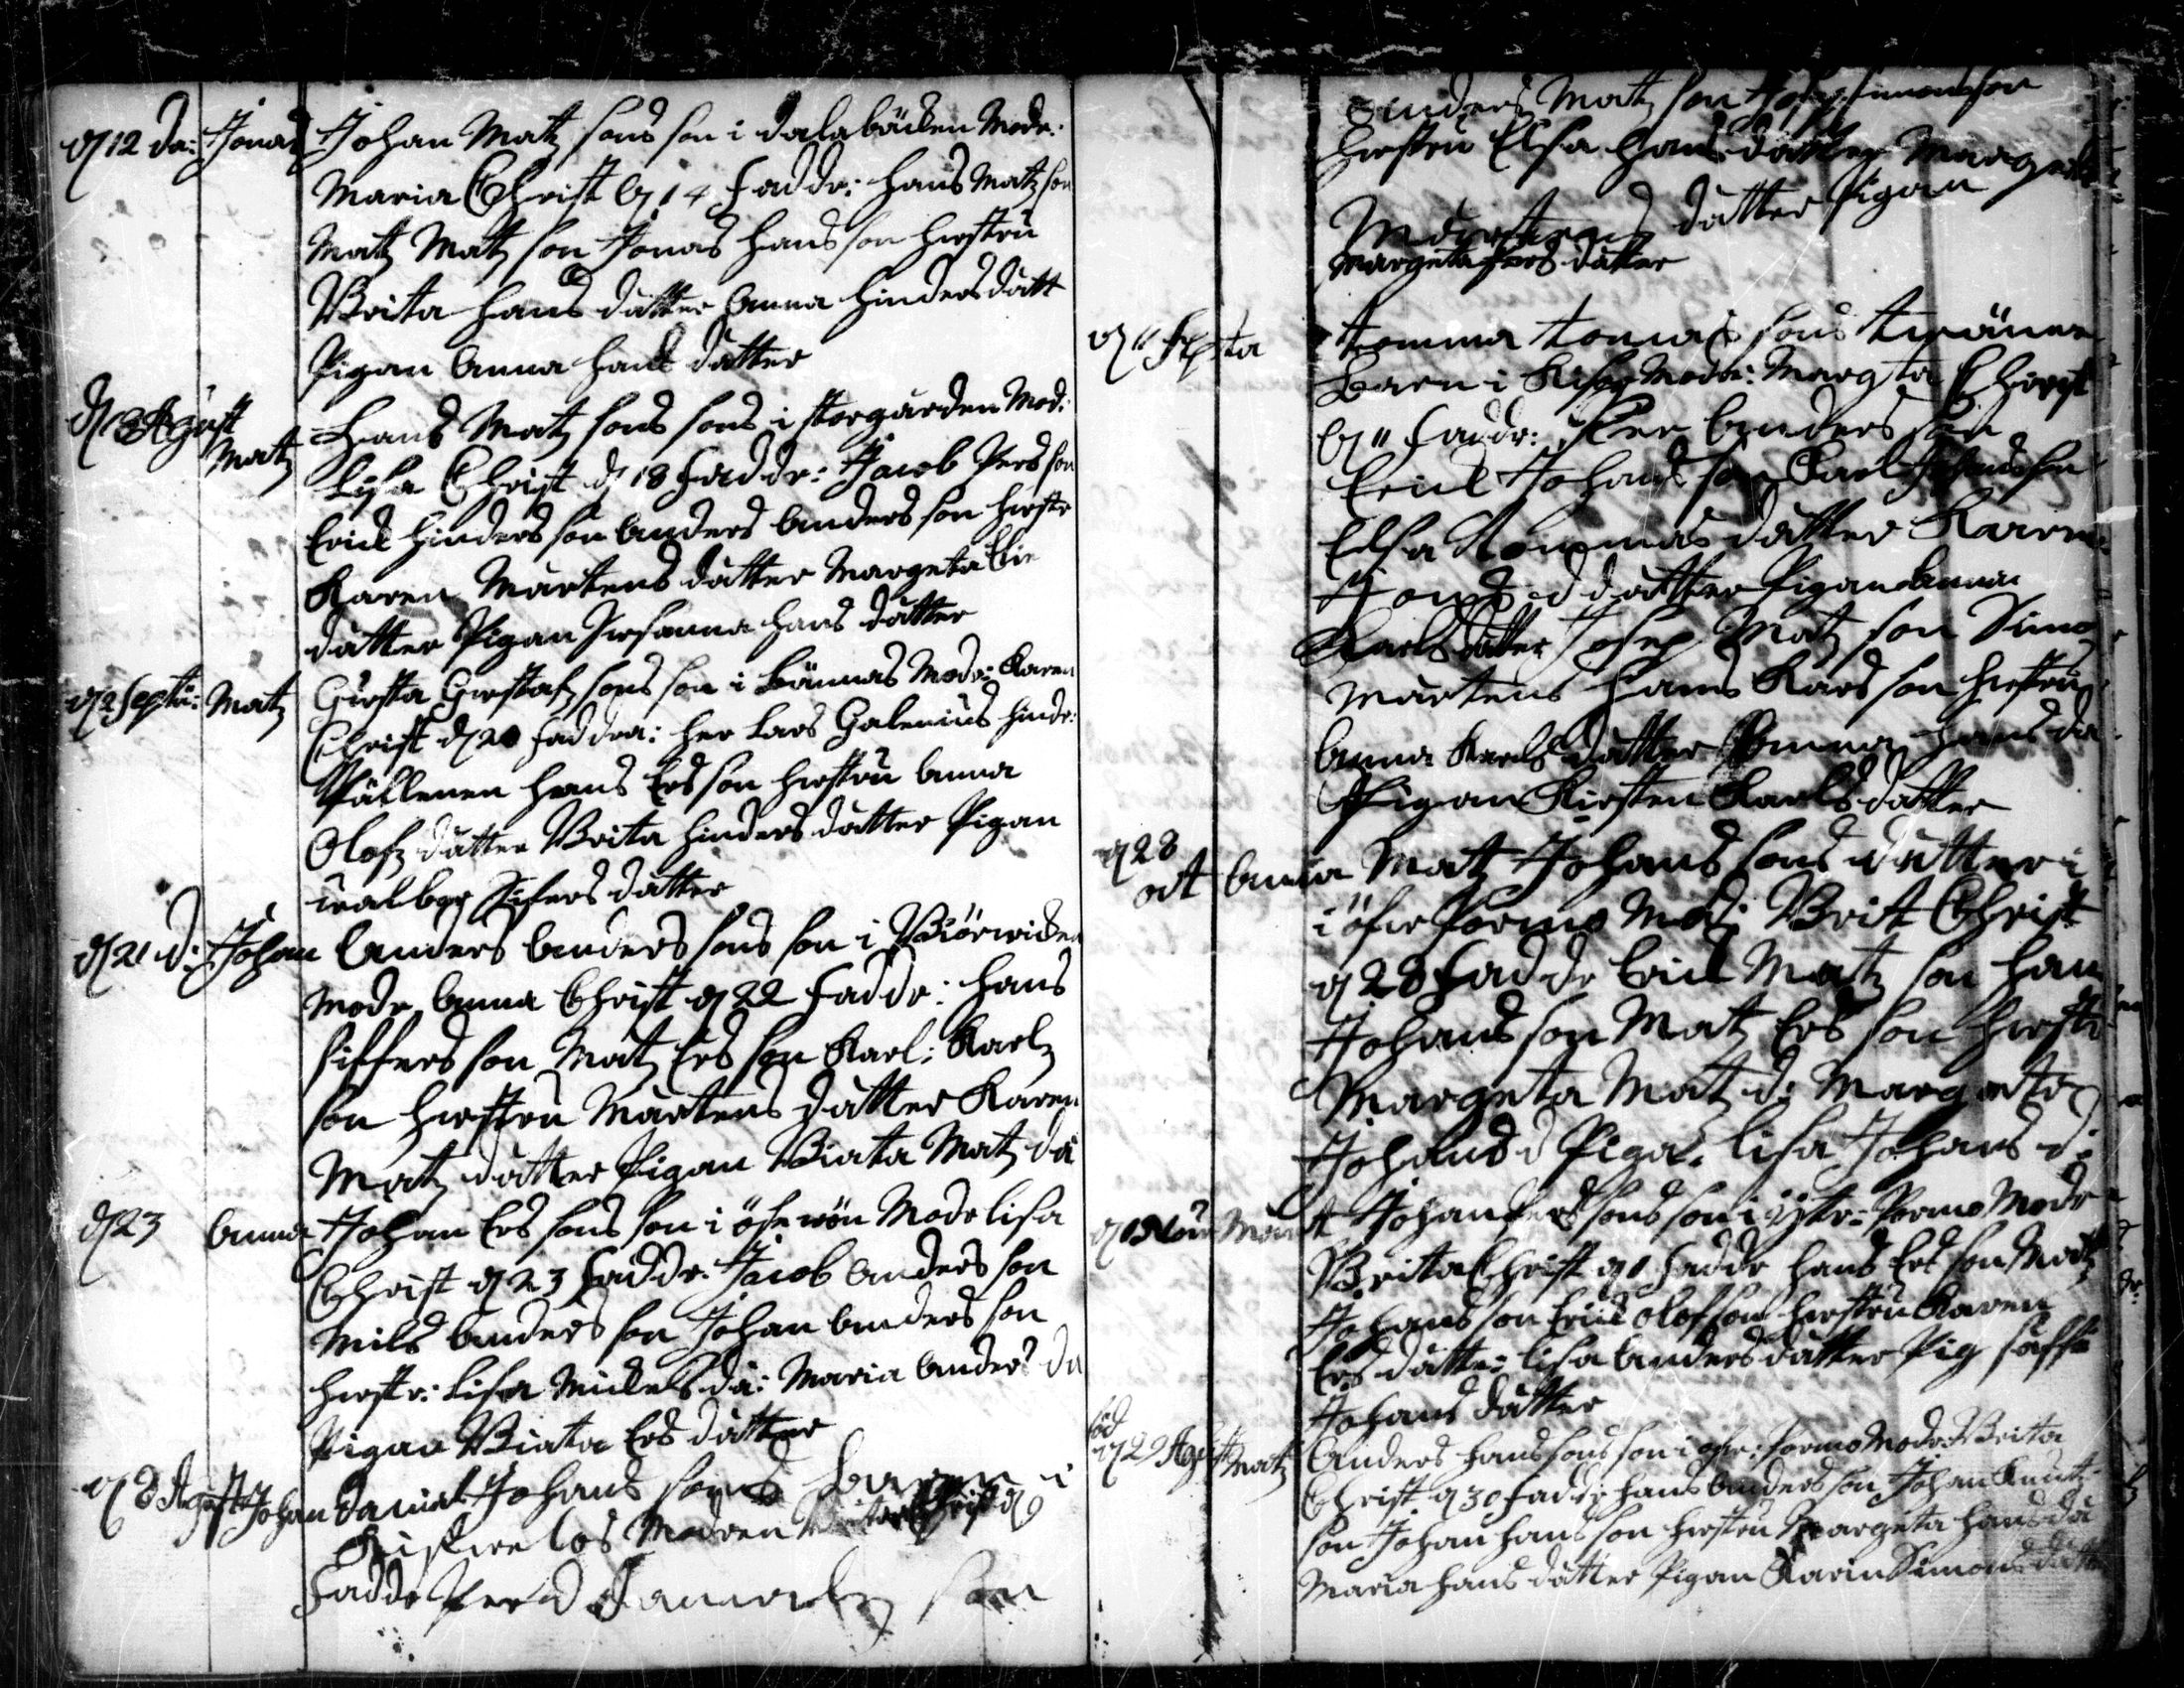 d 12 do: Jonas Johan Matz sons son i dalabäcken Modr:
Maria Christ d 14 Faddr: Hans Matz son
Matz Matz son Jonas Hans son hustru
Brita Hans dätter Anna Hinders dätt
Pigan Anna Hans dätter
d Agust Matz Hans Matz sons sons i storgården Mod:
Lisa Christ d 18 Faddr: Jacob Pers son
Erick Hinders son Anders Anders son hustr
Karen Mårtens dätter Margeta
dätter Pigan Susanna Hans dätter
d 2 Septu: Matz Gusta Gustafz sons son i Bännäs Modr: Karen
Christ d 20 Faddra: her Lars Galenius hindr:
Pällenen Hans Ers son hustru Anna
Olofz dätter Brita Hinders dätter Pigan
walbor Sifers dätter
d 21 d: Johan Anders Anders sons son i Biörwicken
Modr Anna Christ d 22 Faddr: Hans
Siffers son Matz Ers son Karl: Karlz
son hustru Mårtens dätter Karen
Matz dätter Pigan Biata Matz dä
d 23 Anna Johan Ers sons son i öfr Modr Lisa
Christ d 23 Faddr. Jacob Anders son
Nils Anders son Johan Anders son
hustr: Lisa Mickels dä: Maria Anders dä
Pigan Biata Ers dätter
d 8 Agust Johan Daniel Johans sons Baren i
Modren Christ d
Faddr son
Hinders Matz son Simonsson
hustru Elsa Hans dätter Marget
Mårtens dätter Pigan
Margeta Pers dätter
d 11 Septa Tomma Tomas sons
Baren i Modr: Margta Christ
d 11 Faddr: Per Anders son
Erick Johans son Karl Johans son
Elsa Tommas dätter Karin
dätter Pigan Anna
Karls dätter Josep Matz son Simo
Mårtens Hans Kars son hustru
Anna Karls dätter Anna Hans dä
Pigan Kirsten Karls dätter
d 28
Anna Matz Johans sons dätter i
i öfre Pormo Mod: Brit Christ
d 28 Faddr Erick Matz son Han
Johans son Matz Ers son hustr
Margeta Matz d: Margeta
Johans d Piga. Lisa Johans d:
Johan Pers sons son i yttr: Pormo Modr
Brita Christ d 1 Faddr Hans Ers son Matz
Johans son Erick Olofson hustru Karen
Ers dätter: Lisa Anders dätter Pig
Johans dätter
föd
d 29 Agust Matz Anders Hans sons son i öfr: Pormo Modr Brita
Christ d 30 Faddr Hans Anders son Johan Knutz
son Johan Hans son hustru Margeta Hans dä
Maria Hans dätter Pigan Karin Simons dätter